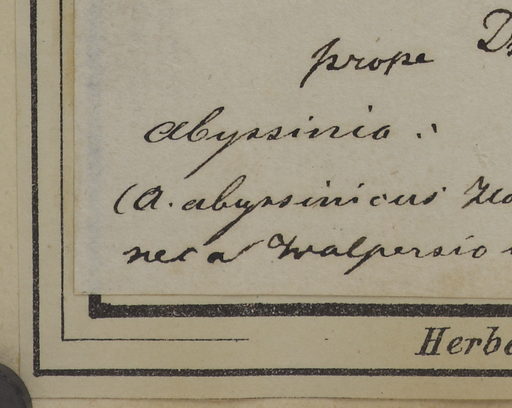 prope
abyssinia :
(A. abyssinicus
nec a Walpersio
Herb